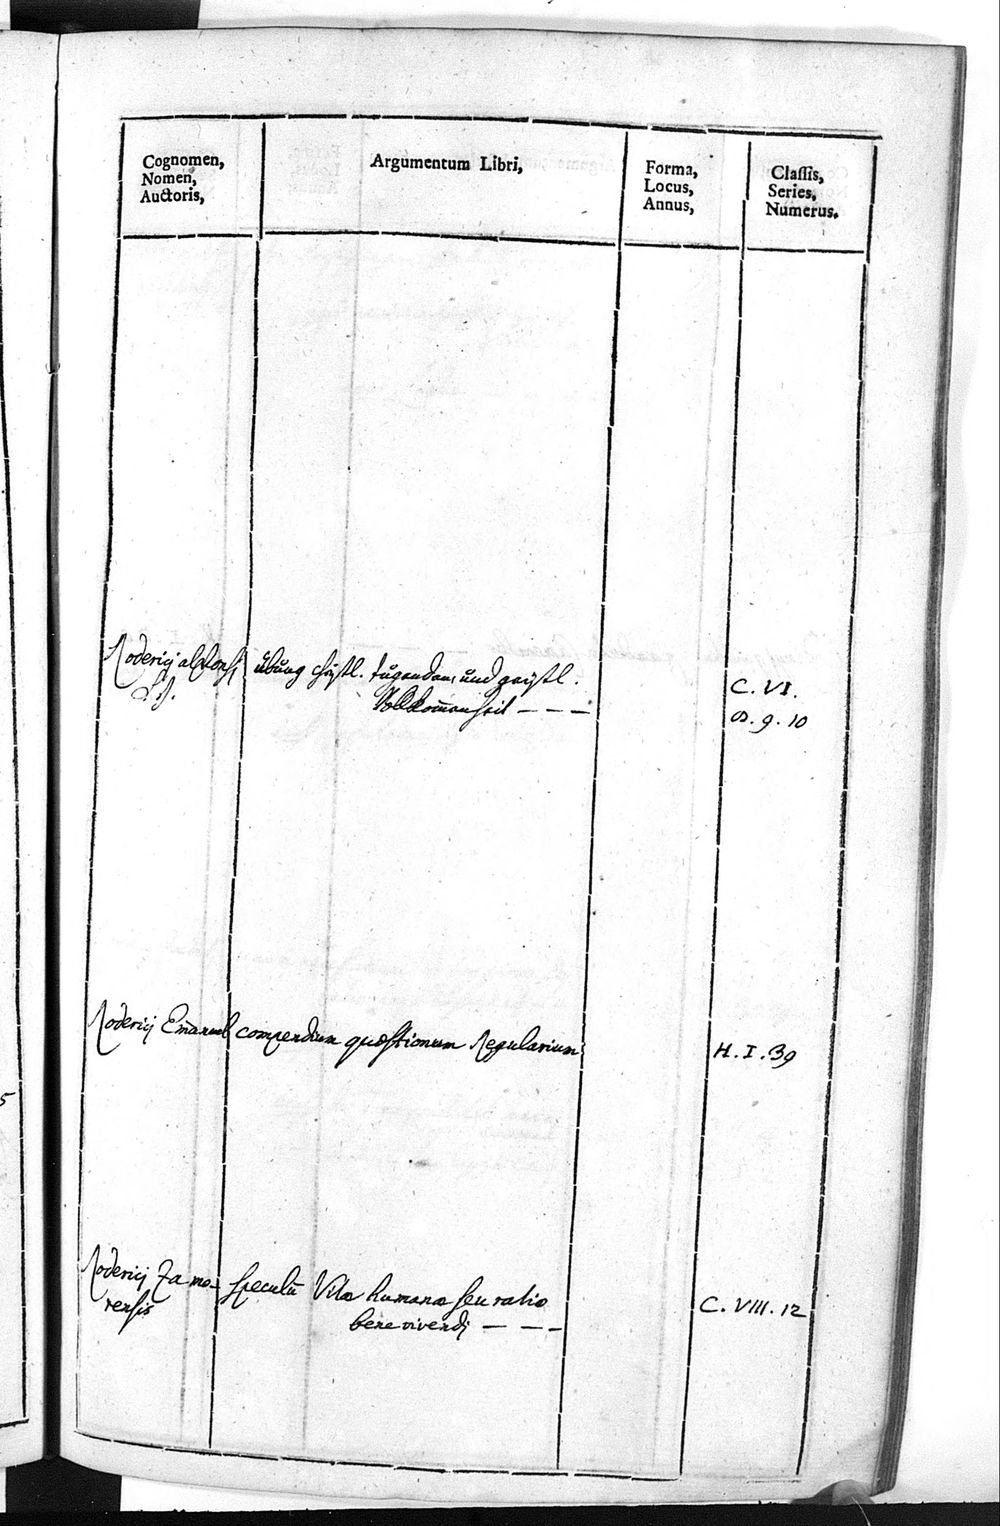 Cognomen,
Nomen,
Auctoris,
Argumentum Libri,
Forma,
Locus,
Annus,
Classis,
Series,
Numerus.
Roderici alfonsi übung christl. tugenden, und geistl.
Vollkom̄enheit - - -
C. VI.
8. 9. 10
Roderici Em̄anuel compendium quæstionum Regularium
H. I. 39
Roderici Zamo-
rensis
speculū Vitæ humanæ seu ratio
bene vivendj - - -
C. VIII. 12
5